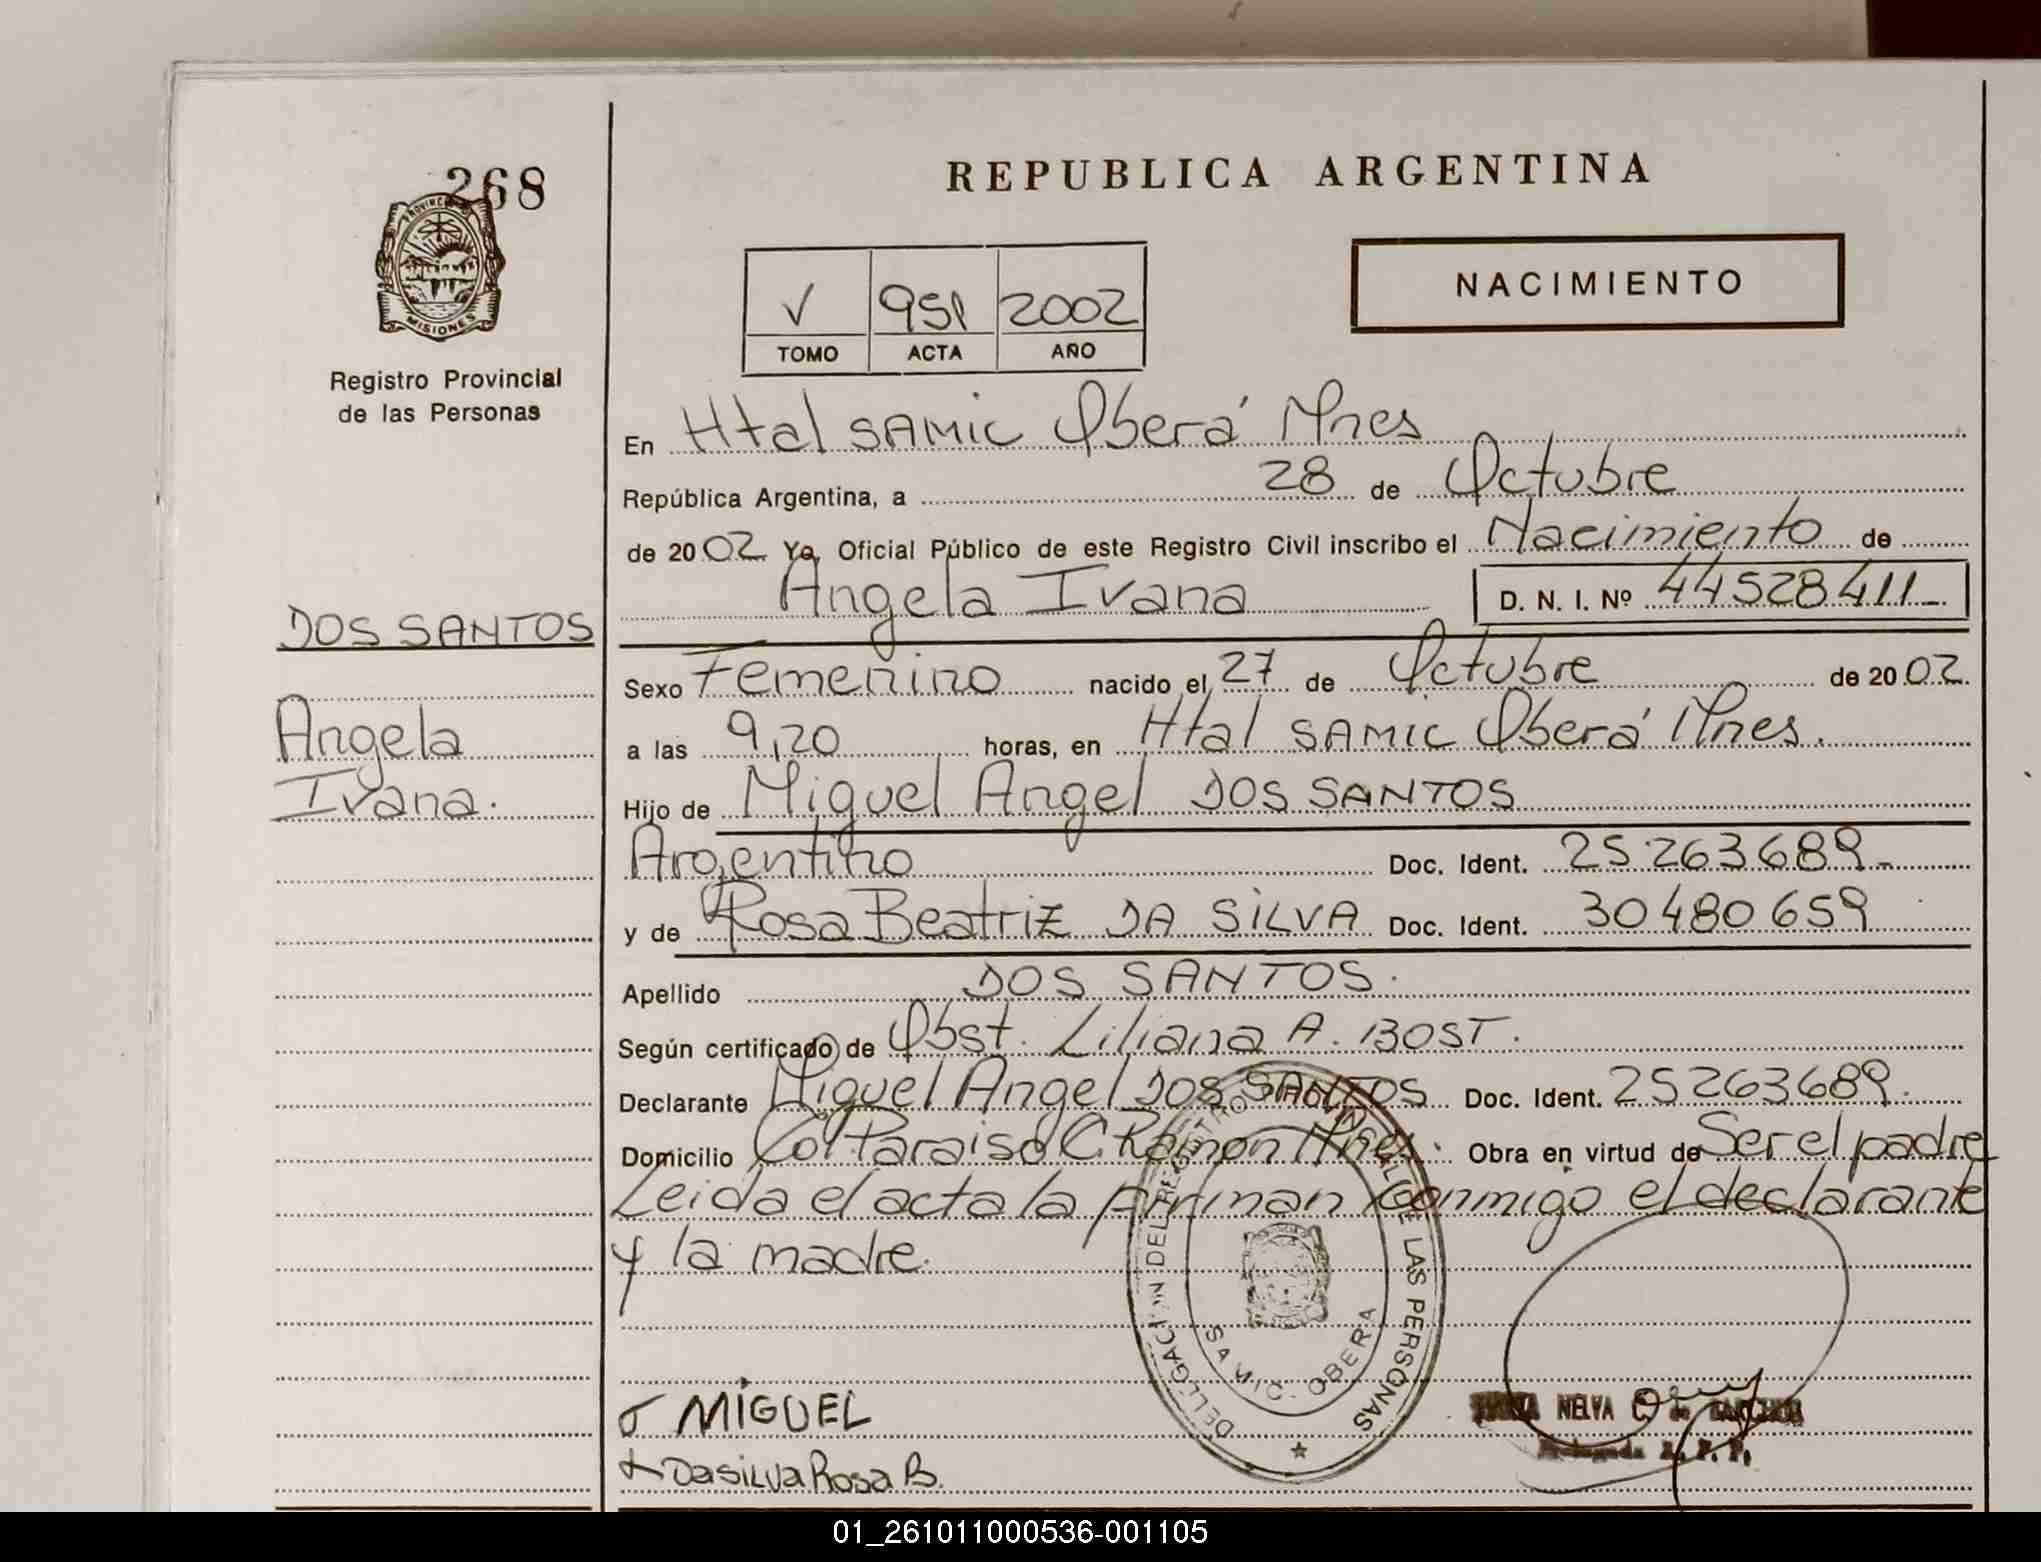 268
PROVINCIA
MISIONES
Registro Provincial
de las Personas
DOS SANTOS
Angela
Ivana.
REPUBLICA ARGENTINA
V 951 2002
TOMO ACTA AÑO
NACIMIENTO
En Htal SAMIC Oberá Mnes
República Argentina, a 28 de Octubre
de 2002 Yo, Oficial Público de este Registro Civil inscribo el Nacimiento de
Angela Ivana D. N. I. Nº 44528411
Sexo Femenino nacido el 27 de Octubre de 2002
a las 9,20 horas, en Htal SAMIC Oberá Mnes.
Hijo de Miguel Angel DOS SANTOS
Argentino Doc. Ident. 25.263689
y de Rosa Beatriz DA SILVA Doc. Ident. 30480659
Apellido DOS SANTOS.
Según certificado de Obst. Liliana A. BOST.
Declarante Miguel Angel DOS SANTOS Doc. Ident. 25263689.
Domicilio Col Paraiso C. Ramon Mnes. Obra en virtud de Ser el padre
Leida el acta la firman conmigo el declarante
y la madre.
DELEGACION DEL REGISTRO PROVINCIAL DE LAS PERSONAS
SAMIC - OBERA
MIGUEL
Dasilva Rosa B.
NELVA C. de
R. P. P.
01_261011000536-001105